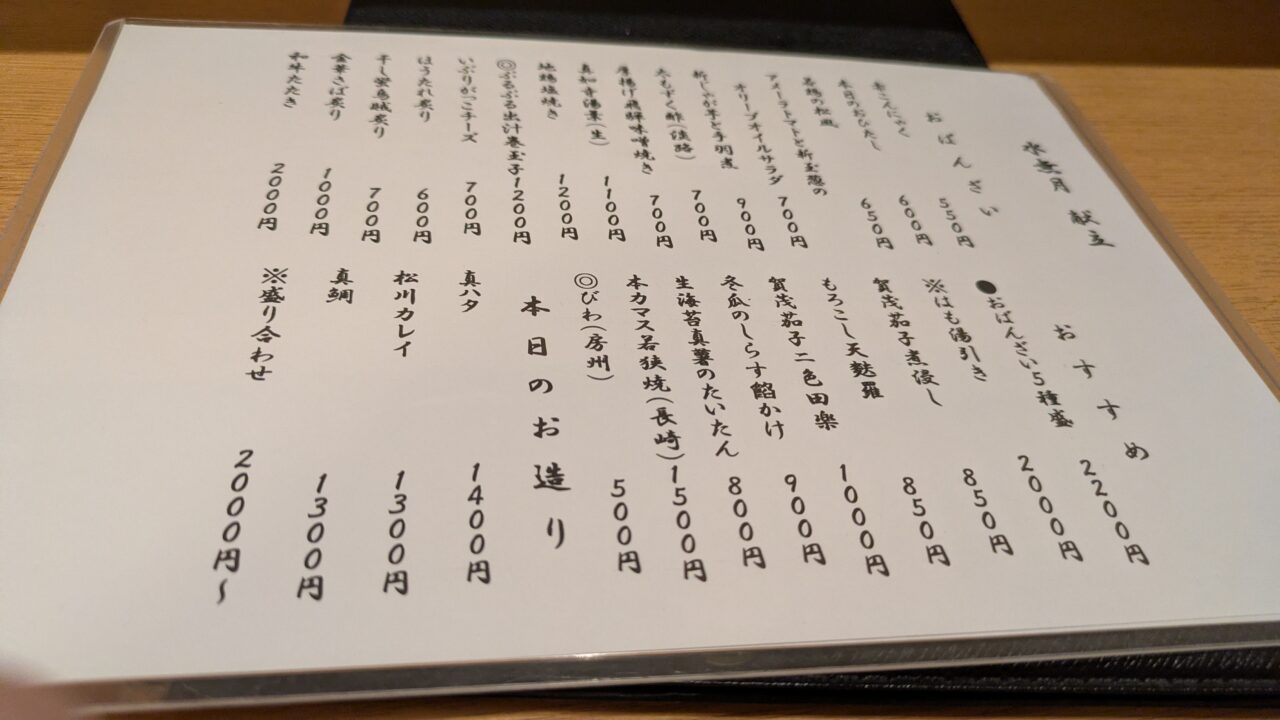 水無月 献立
おばんざい
赤こんにゃく 550円
本日のおひたし 600円
若鶏の松風 650円
アメーラトマトと新玉葱の
オリーブオイルサラダ 700円
新じゃが芋と手羽煮 900円
冬もずく酢(淡路) 700円
厚揚げ飛騨味噌焼き 700円
真如寺湯葉(生) 1100円
地鶏塩焼き 1200円
◎ぷるぷる出汁巻玉子 1200円
いぶりがっこチーズ 700円
ほうたれ炙り 600円
干し蛍烏賊炙り 700円
金華さば炙り 1000円
和牛たたき 2000円
おすすめ
●おばんざい5種盛 2200円
※はも湯引き 2000円
賀茂茄子煮浸し 850円
もろこし天麩羅 850円
賀茂茄子二色田楽 1000円
冬瓜のしらす餡かけ 900円
生海苔真薯のたいたん 800円
本カマス若狭焼(長崎) 1500円
◎びわ(房州) 500円
本日のお造り
真ハタ 1400円
松川カレイ 1300円
真鯛 1300円
※盛り合わせ 2000円～